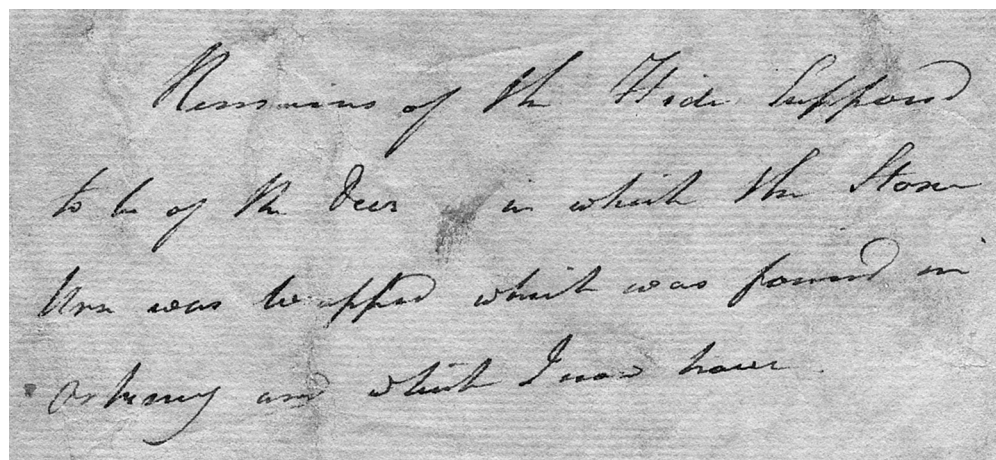 Remains of the Hide Supposd
to be of the Deer in which the Stone
Urn was wrapped which was found in
Orkney and which I now have